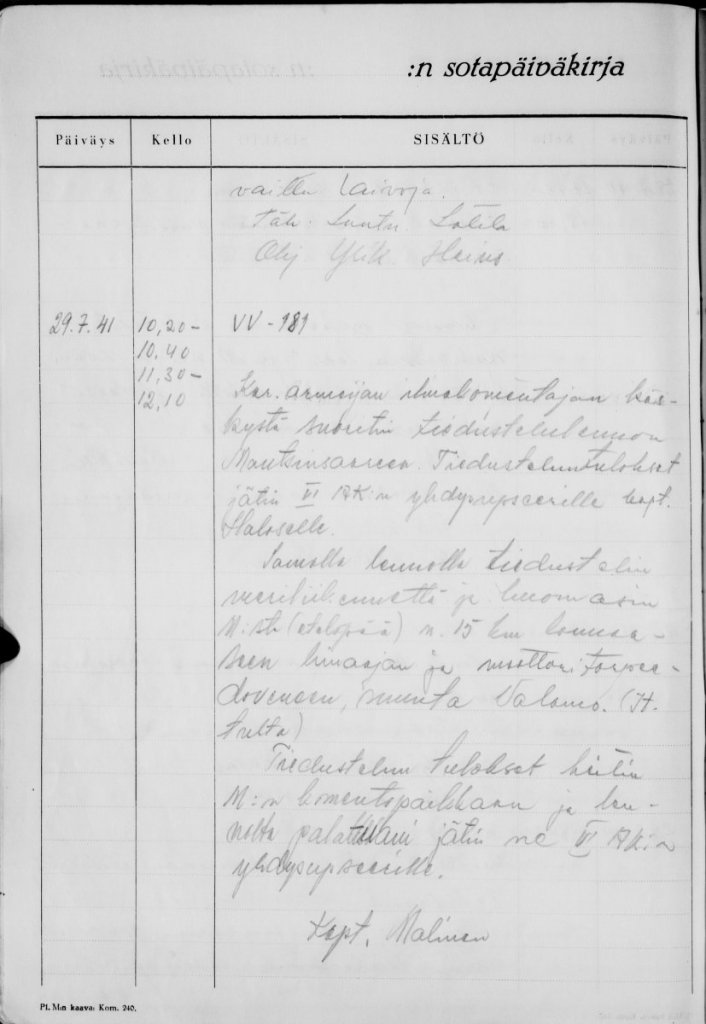 :n sotapäiväkirja
Päiväys Kello SISÄLTÖ
vailla laivoja.
Täh: Luutn.
Ohj. Ylik.
29.7.41 10,20- VV-181
10,40
11,30-
12,10
Kar. armeijan ilmakomentajan käs-
kystä suoritin tiedustelulennon
Mantsinsaareen. Tiedustelutulokset
jätin VI AK:n yhdysupseerille kapt.
Haloselle.
Samalla lennolla tiedustelin
meriliikennettä ja huomasin
M:st (eteläpää) n. 15 km lounaa-
seen hinaajan ja moottoritorpee-
doveneen, suunta Valamo. (It.
tulta)
Tiedustelun tulokset heitin
M:n komentopaikkaan ja len-
nolta palattuani jätin ne VI AK:n
yhdysupseerille.
Kapt. Malinen
Pl. M:n kaava: Kom. 240.